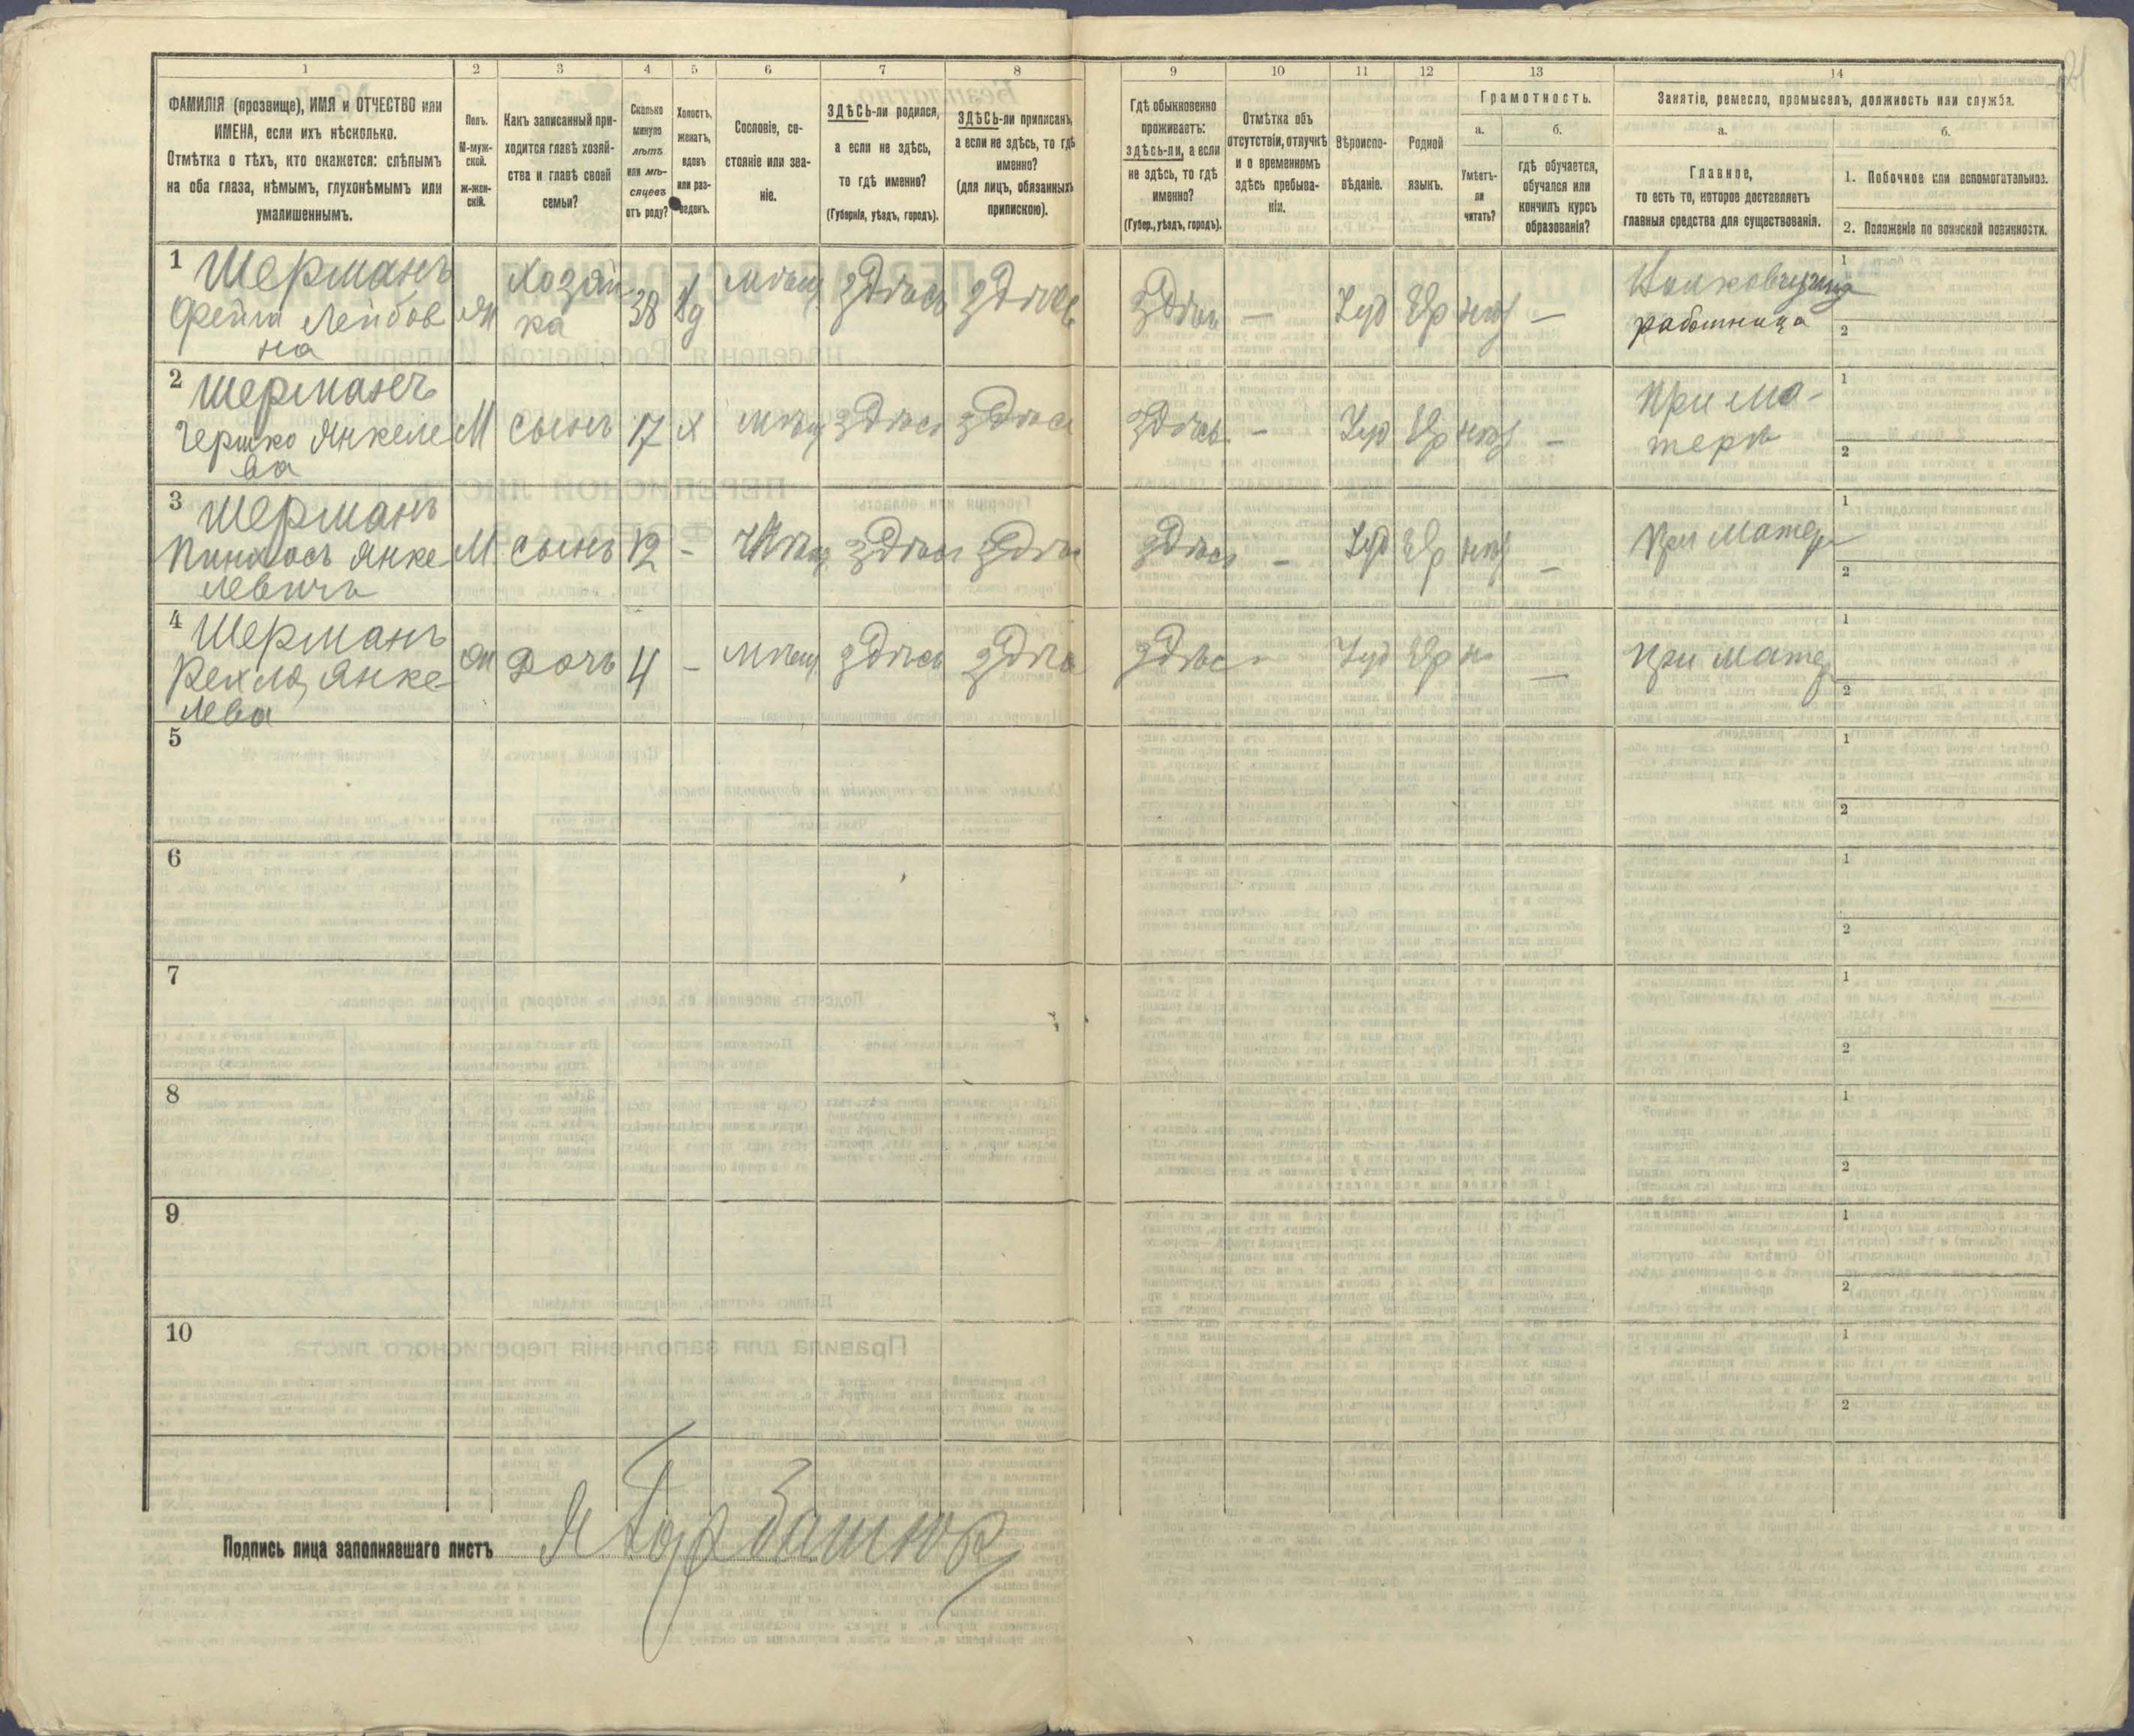 1 2 3 4 5 6 7 8 9 10 11 12 13 14
ФАМИЛІЯ (прозвище), ИМЯ и ОТЧЕСТВО или
ИМЕНА, если ихъ нѣсколько.
Отмѣтка о тѣхъ, кто окажется: слѣпымъ
на оба глаза, нѣмымъ, глухонѣмымъ или
умалишеннымъ.
Полъ.
М-муж-
ской.
Ж-жен-
скій.
Какъ записанный при-
ходится главѣ хозяй-
ства и главѣ своей
семьи?
Сколько
минуло
лѣтъ
или мѣ-
сяцевъ
отъ роду?
Холостъ,
женатъ,
вдовъ
или раз-
веденъ.
Сословіе, со-
стояніе или зва-
ніе.
ЗДѢСЬ-ли родился,
а если не здѣсь,
то гдѣ именно?
(Губернія, уѣздъ, городъ).
ЗДѢСЬ-ли приписанъ,
а если не здѣсь, то гдѣ
именно?
(для лицъ, обязанныхъ
припискою).
Гдѣ обыкновенно
проживаетъ:
здѣсь-ли, а если
не здѣсь, то гдѣ
именно?
(Губер., уѣздъ, городъ).
Отмѣтка объ
отсутствіи, отлучкѣ
и о временномъ
здѣсь пребыва-
ніи.
Вѣроиспо-
вѣданіе.
Родной
языкъ.
Грамотность.
а.
Умѣетъ-
ли
читать?
б.
гдѣ обучается,
обучался или
кончилъ курсъ
образованія?
Занятіе, ремесло, промыселъ, должность или служба.
а.
Главное,
то есть то, которое доставляетъ
главныя средства для существованія.
б.
1. Побочное или вспомогательное.
2. Положеніе по воинской повинности.
1 Шерманъ
Фейга Лейбов
на
ж Хозяй
ка 38 вд мѣщ здѣсь здѣсь здѣсь — Iуд Евр нѣт —
работница
1
2
2 Шерманъ
Гершко Янкеле
ва
М сынъ 17 х мѣщ здѣсь здѣсь здѣсь - Iуд Евр нѣт -
При ма-
тери
1
2
3 Шерманъ
Пинхось Янке
левичъ
М сынъ 12 - мѣщ здѣсь здѣсь здѣсь - Iуд Евр нѣт -
При матер
1
2
4 Шерманъ
Рехля Янке-
лева
ж Дочь 4 - мѣщ здѣсь здѣсь здѣсь - Iуд Евр н —
При матер
1
2
5
1
2
6
1
2
7
1
2
8
1
2
9
1
2
10
1
2
Подпись лица заполнявшаго листъ